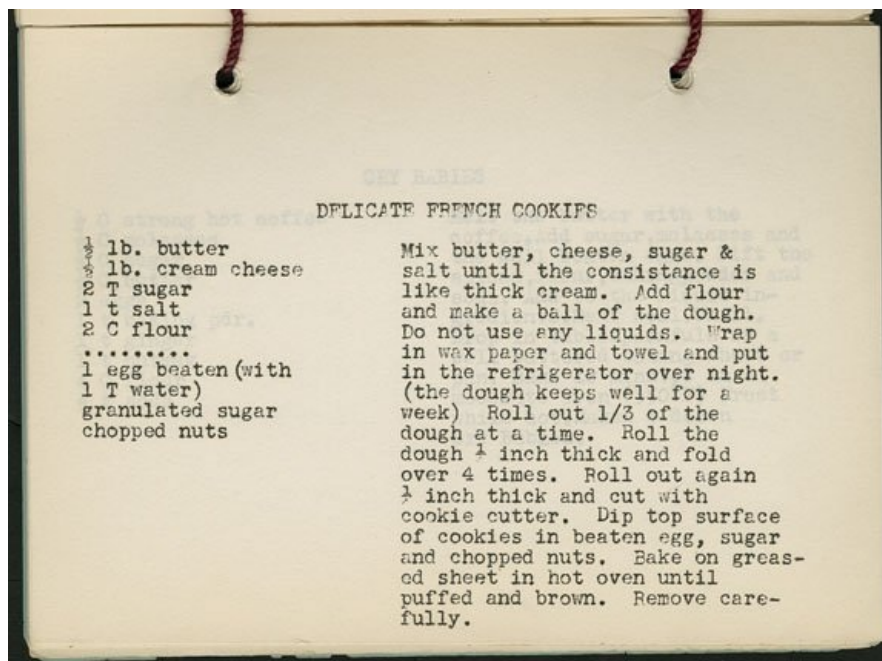 DELICATE FRENCH COOKIES
½ lb. butter
½ lb. cream cheese
2 T sugar
1 t salt
2 C flour
..........
1 egg beaten (with
1 T water)
granulated sugar
chopped nuts
Mix butter, cheese, sugar &
salt until the consistance is
like thick cream. Add flour
and make a ball of the dough.
Do not use any liquids. Wrap
in wax paper and towel and put
in the refrigerator over night.
(the dough keeps well for a
week) Roll out 1/3 of the
dough at a time. Roll the
dough inch thick and fold
over 4 times. Roll out again
inch thick and cut with
cookie cutter. Dip top surface
of cookies in beaten egg, sugar
and chopped nuts. Bake on greas-
ed sheet in hot oven until
puffed and brown. Remove care-
fully.